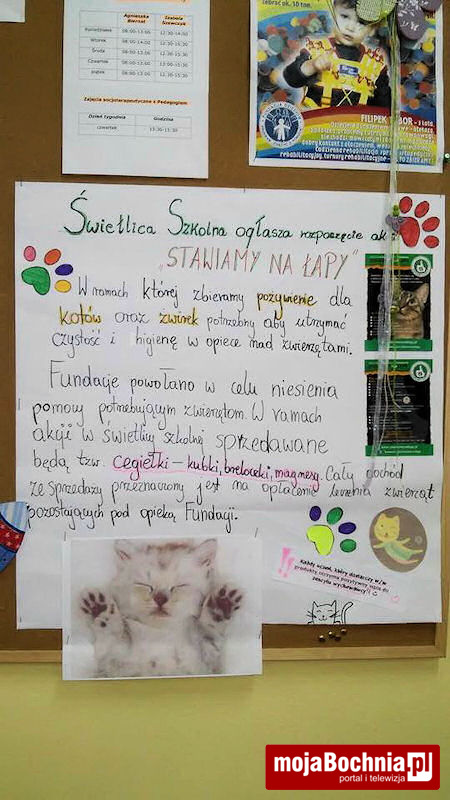 Agnieszka Biernat Izabela Szewczyk
Poniedziałek 08:00-13:00 12:30-14:00
Wtorek 08:00-14:00 12:30-15:30
Środa 08:00-13:00 12:30-15:30
Czwartek 08:00-13:00 12:30-15:30
piątek 08:00-13:00 12:30-15:30
Zajęcia socjoterapeutyczne z Pedagogiem
Dzień tygodnia Godzina
czwartek 13:30-15:30
zebrać ok. 10 ton.
FILIPEK
rehabilitacyjny, turnusy rehabilitacyjne
Świetlica Szkolna ogłasza rozpoczęcie
"STAWIAMY NA ŁAPY"
W ramach której zbieramy pożywienie dla
kotów oraz żwirek potrzebny aby utrzymać
czystość i higienę w opiece nad zwierzętami.
Fundacje powołano w celu niesienia
pomocy potrzebującym zwierzętom. W ramach
akcji w świetlicy szkolnej sprzedawane
będą tzw. cegiełki – kubki, breloczki, magnesy. Cały dochód
ze sprzedaży przeznaczony jest na opłacenie leczenia zwierząt
pozostających pod opieką Fundacji.
!! Każdy uczeń, który dostarczy w/w
produkty otrzyma pozytywny wpis do
zeszytu wychowawcy!!
mojaBochnia.pl
portal i telewizja